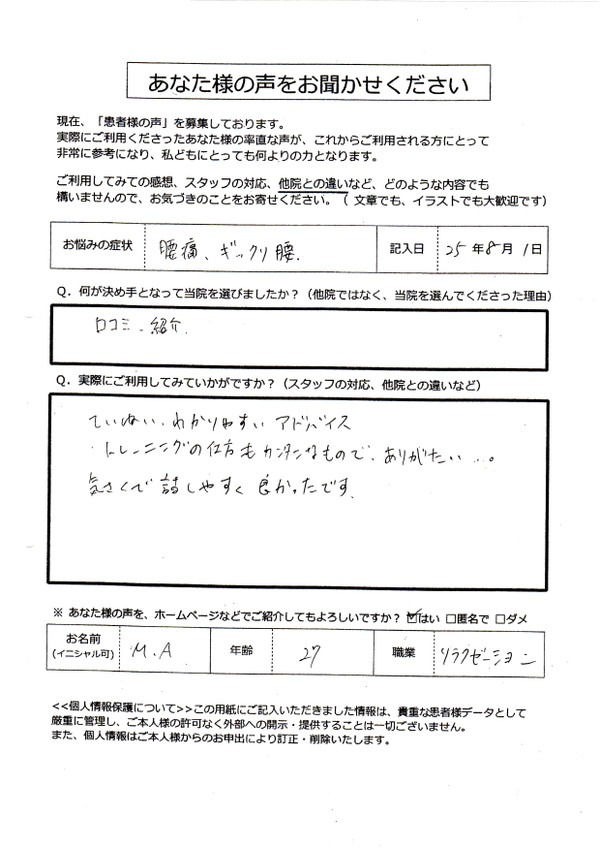 あなた様の声をお聞かせください
現在、「患者様の声」を募集しております。
実際にご利用くださったあなた様の率直な声が、これからご利用される方にとって
非常に参考になり、私どもにとっても何よりの力となります。
ご利用してみての感想、スタッフの対応、他院との違いなど、どのような内容でも
構いませんので、お気づきのことをお寄せください。（ 文章でも、イラストでも大歓迎です）
お悩みの症状 腰痛、ギックリ腰. 記入日 25 年 8 月 1 日
Q．何が決め手となって当院を選びましたか？（他院ではなく、当院を選んでくださった理由）
口コミ、紹介.
Q．実際にご利用してみていかがですか？（スタッフの対応、他院との違いなど）
ていねい、わかりやすい アドバイス
・トレーニングの仕方もカンタンなもので、ありがたい…。
気さくで 話しやすく 良かったです.
※ あなた様の声を、ホームページなどでご紹介してもよろしいですか？ ☑はい □匿名で □ダメ
お名前 M.A 年齢 27 職業 リラクゼーション
(イニシャル可)
<<個人情報保護について>>この用紙にご記入いただきました情報は、貴重な患者様データとして
厳重に管理し、ご本人様の許可なく外部への開示・提供することは一切ございません。
また、個人情報はご本人様からのお申出により訂正・削除いたします。